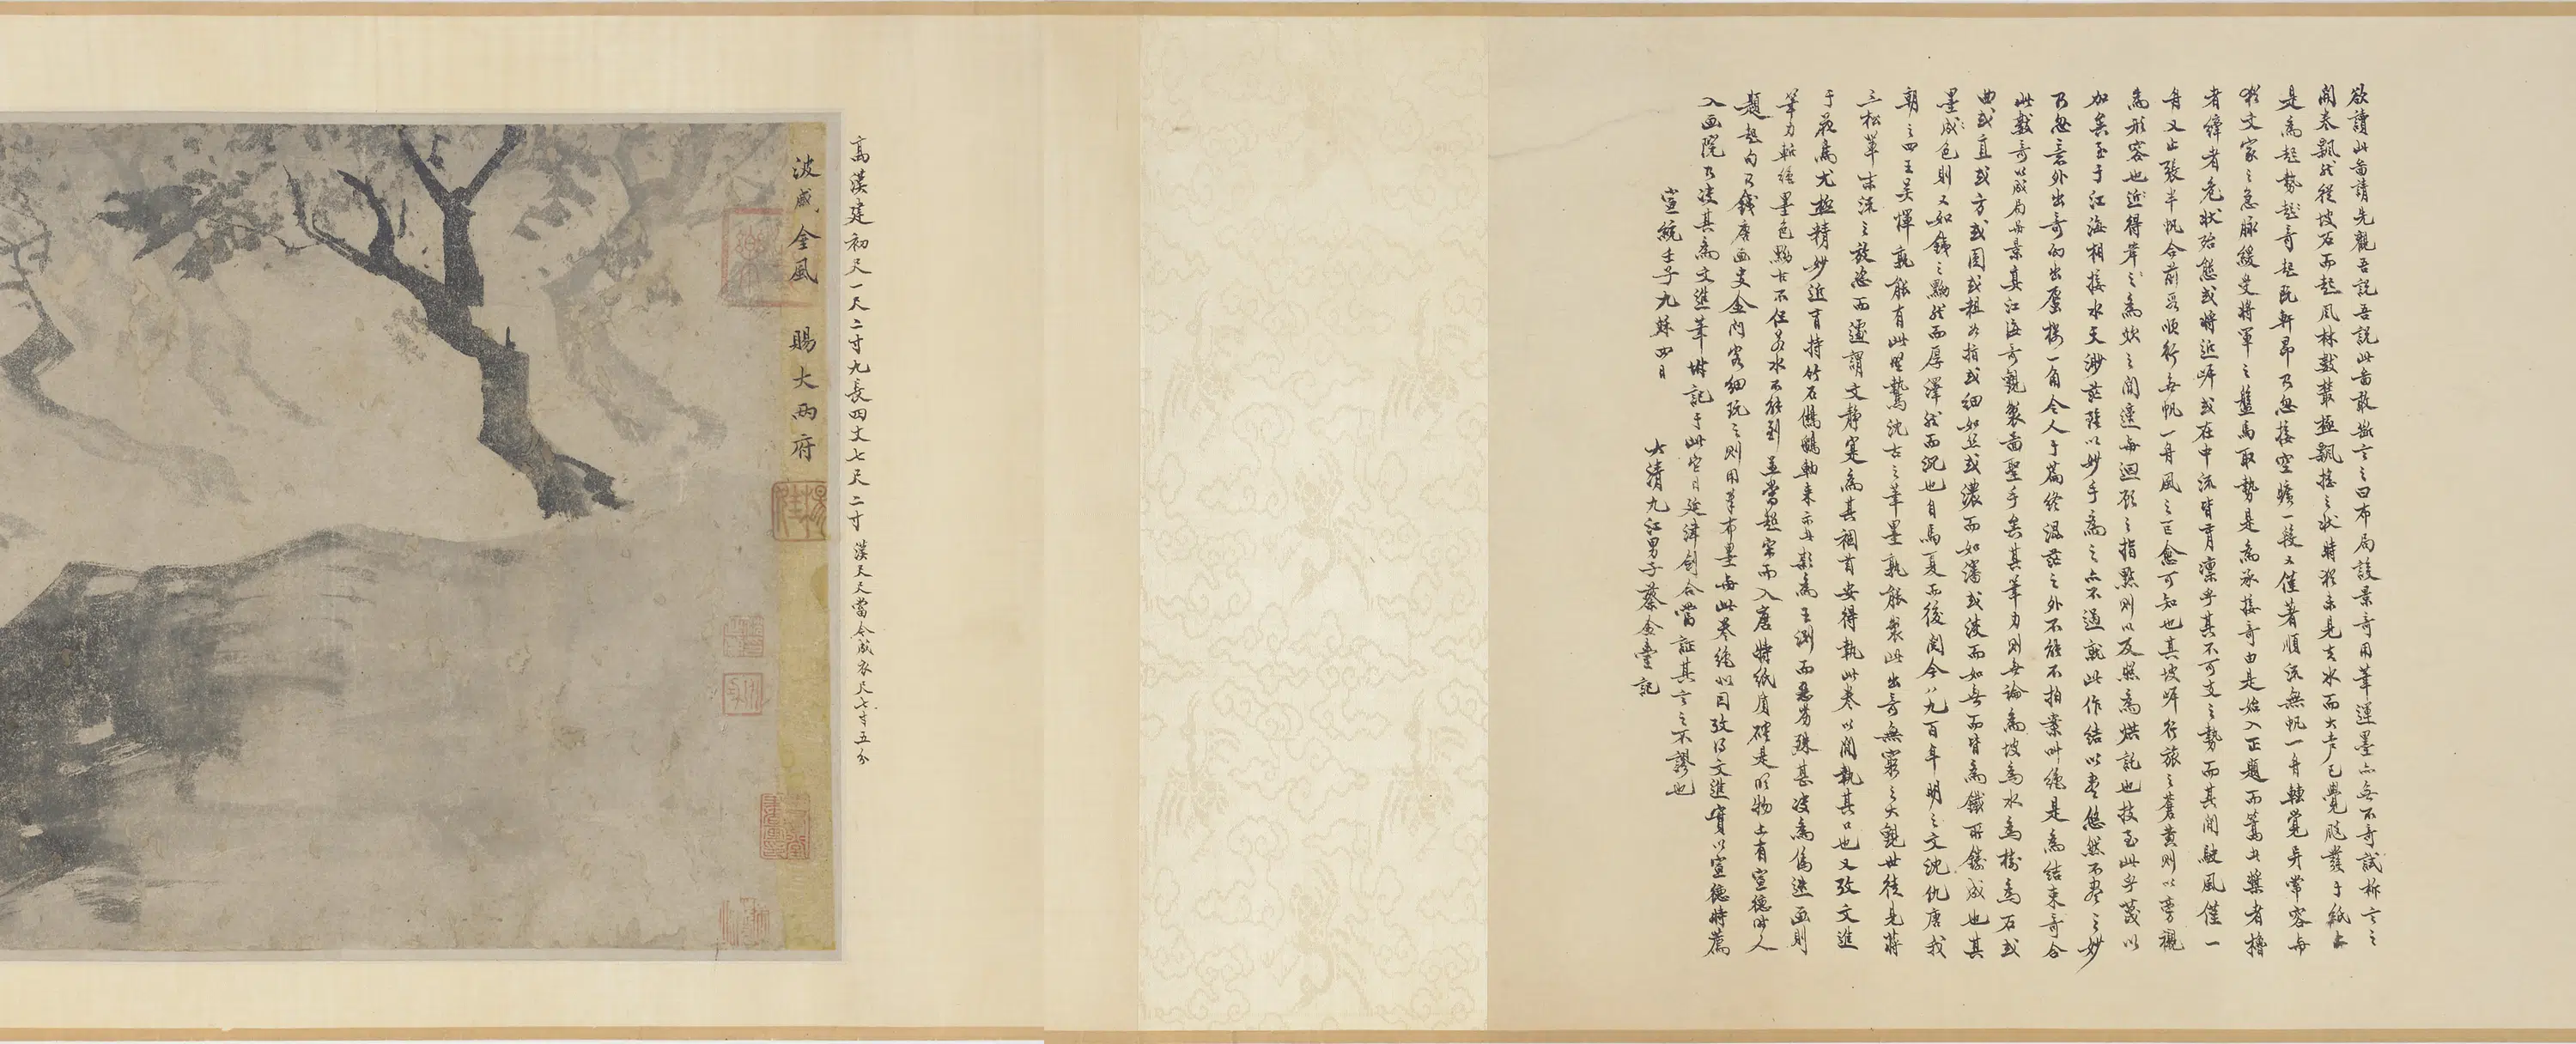 欲讀此畫請先觀吾説吾説此畫敢斷言之曰布局設景奇用筆運墨亦無不奇試析言之
開卷飄然從坡石而起風林數叢極飄搖之狀時猶未見去水而大聲已覺颼颼于紙上
是為起勢起奇起既軒昂乃忽接空曠一段又僅著順流無帆一舟轉覺异常容与
猶文家之急脈緩受將軍之盤馬取勢是為承接奇由是始入正題而篙者槳者櫓
者縴者危狀殆態或將近岸或在中流皆有凛乎其不可支之勢而其間駛風僅一
舟又止張半帆合前面順行無帆一舟風之巨愈可知也其坡岸行旅之蒼黄則以旁襯
為形容也近得岸之為炊之閒達每迴顧之指點則以反照為烘託也技至此乎蔑以
加矣至于江海相接水天渺茫難以妙手為之亦不過就此作結以盡悠然不盡之妙
乃忽意外出奇幻出蜃樓一角令人于篇終混茫之外不能不拍案叫絶是為結束奇合
此數奇以成局無景真江海奇觀製畫聖手矣其筆力則無論為坡為水為樹為石或
曲或直或方或圓或粗如指或細如絲或濃而如瀋或淡而如無而皆為鐵所鑄成也其
墨成色則又如鐵之黝然而厚澤然而沉也自馬夏而後閲今八九百年明之文沈仇唐我
朝之四王吴惲孰能有此堅驁沈古之筆墨孰能製此出奇無窮之大觀世徒見蔣
三松輩末流之放恣而遽謂文静寔為其禍首安得執此卷以開執其口也又攷文進
于花鳥尤極精妙近有持竹石鸜鵒軸來示無款為王淵而惡劣殊甚決為僞迹画則
筆力斬絶墨色黝古不但若水不能到並當超宋而入唐特紙質確是明物上有宣德時人
題起句乃錢唐画史金門客細玩之則用筆布墨無此卷絶似因攷得文進實以宣德時薦
入画院乃決其為文進筆坿記于此它日延津劍合當証其言之不謬也
宣統壬子九秋四日
大清九江男子蔡金臺記
高漢建初尺一尺二寸九長四丈七尺二寸 漢尺尺當今成衣尺七寸五分
波盛金風 賜大兩府